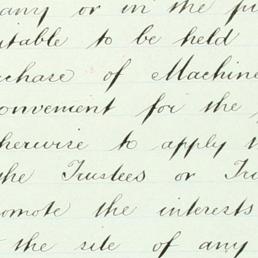 any or in the pu
itable to be held
rchase of Machine
onvement for the
herwise to apply
the Trustees or Tru
omote the interests
the site of any